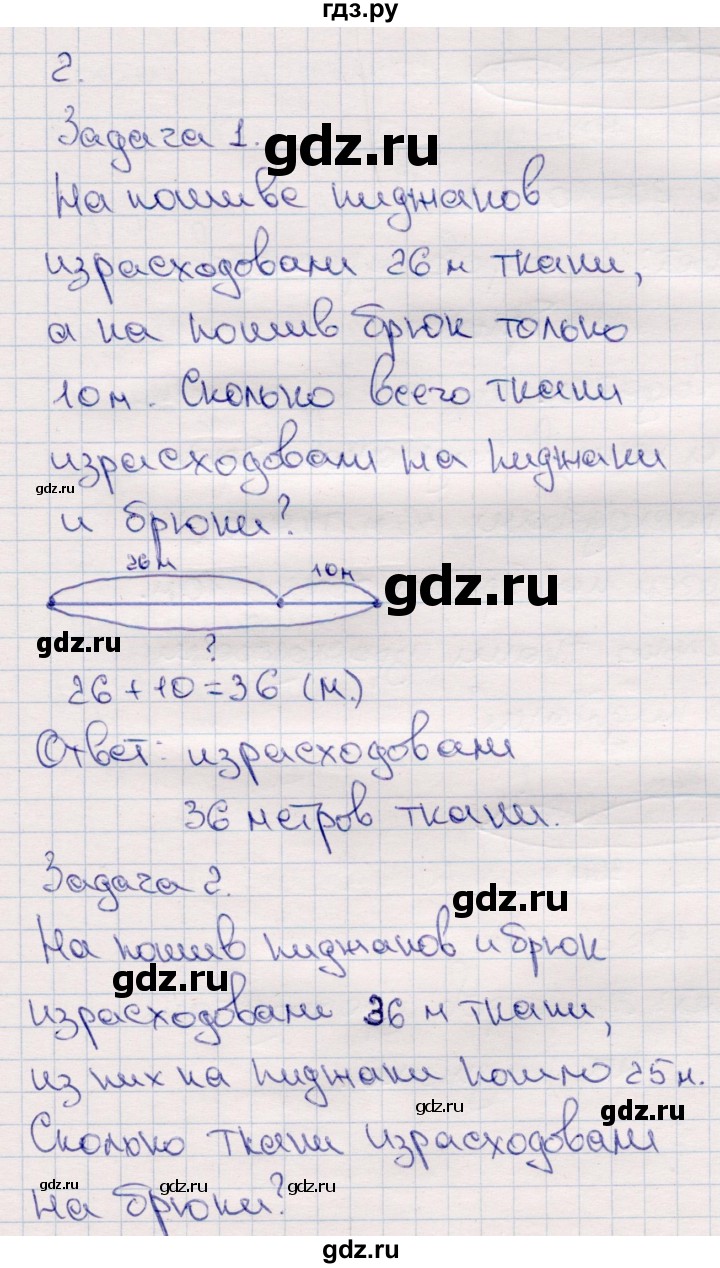 гдз.ру
2.
Задача 1.
gdz.ru
На пошиве пиджаков
израсходовали 26 м ткани,
а на пошив брюк только
10 м. Сколько всего ткани
израсходовали на пиджаки
gdz.ru
и брюки?
26 м 10 м
gdz.ru
gdz.ru
?
26 + 10 = 36 (м.)
Ответ: израсходовали
36 метров ткани.
Задача 2.
gdz.ru
На пошив пиджаков и брюк
gdz.ru
израсходовали 36 м ткани,
из них на пиджаки пошло 25 м.
gdz.ru
gdz.ru
Сколько ткани израсходовали
gdz.ru gdz.ru gdz.ru
на брюки?
gdz.ru